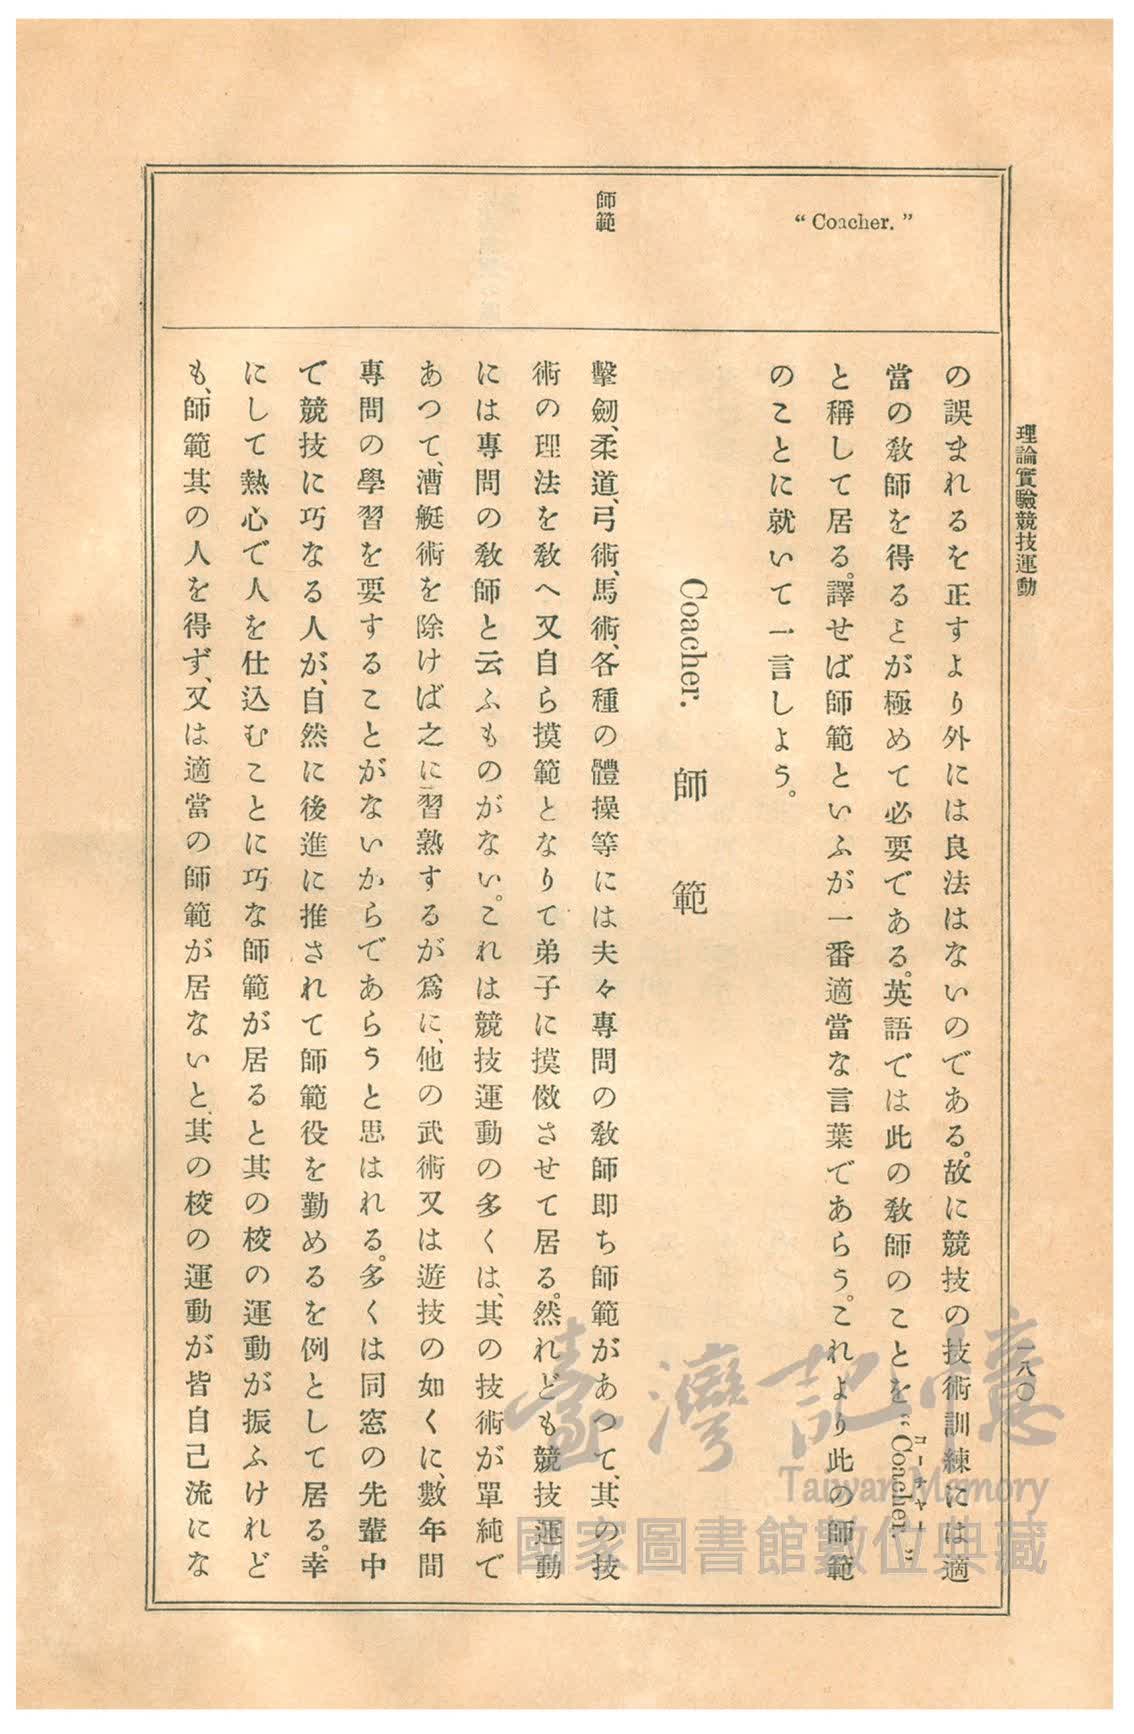 理論實驗競技運動
一八〇
“Coacher.”
師範
の誤まれるを正すより外には良法はないのである。故に競技の技術訓練には適
當の敎師を得るヿが極めて必要である。英語では此の敎師のことを“Coacher.”
コーチヤー
と稱して居る。譯せば師範といふが一番適當な言葉であらう。これより此の師範
のことに就いて一言しよう。
Coacher. 師範
擊劒、柔道、弓術、馬術、各種の體操等には夫々專問の敎師即ち師範があつて、其の技
術の理法を敎へ又自ら摸範となりて弟子に摸倣させて居る。然れども競技運動
には專問の敎師と云ふものがない。これは競技運動の多くは、其の技術が單純で
あつて、漕艇術を除けば之に習熟するが爲に、他の武術又は遊技の如くに、數年間
專問の學習を要することがないからであらうと思はれる。多くは同窓の先輩中
で競技に巧なる人が、自然に後進に推されて師範役を勤めるを例として居る。幸
にして熱心で人を仕込むことに巧な師範が居ると其の校の運動が振ふけれど
も、師範其の人を得ず、又は適當の師範が居ないと、其の校の運動が皆自己流にな
臺灣記憶
Taiwan Memory
國家圖書館數位典藏